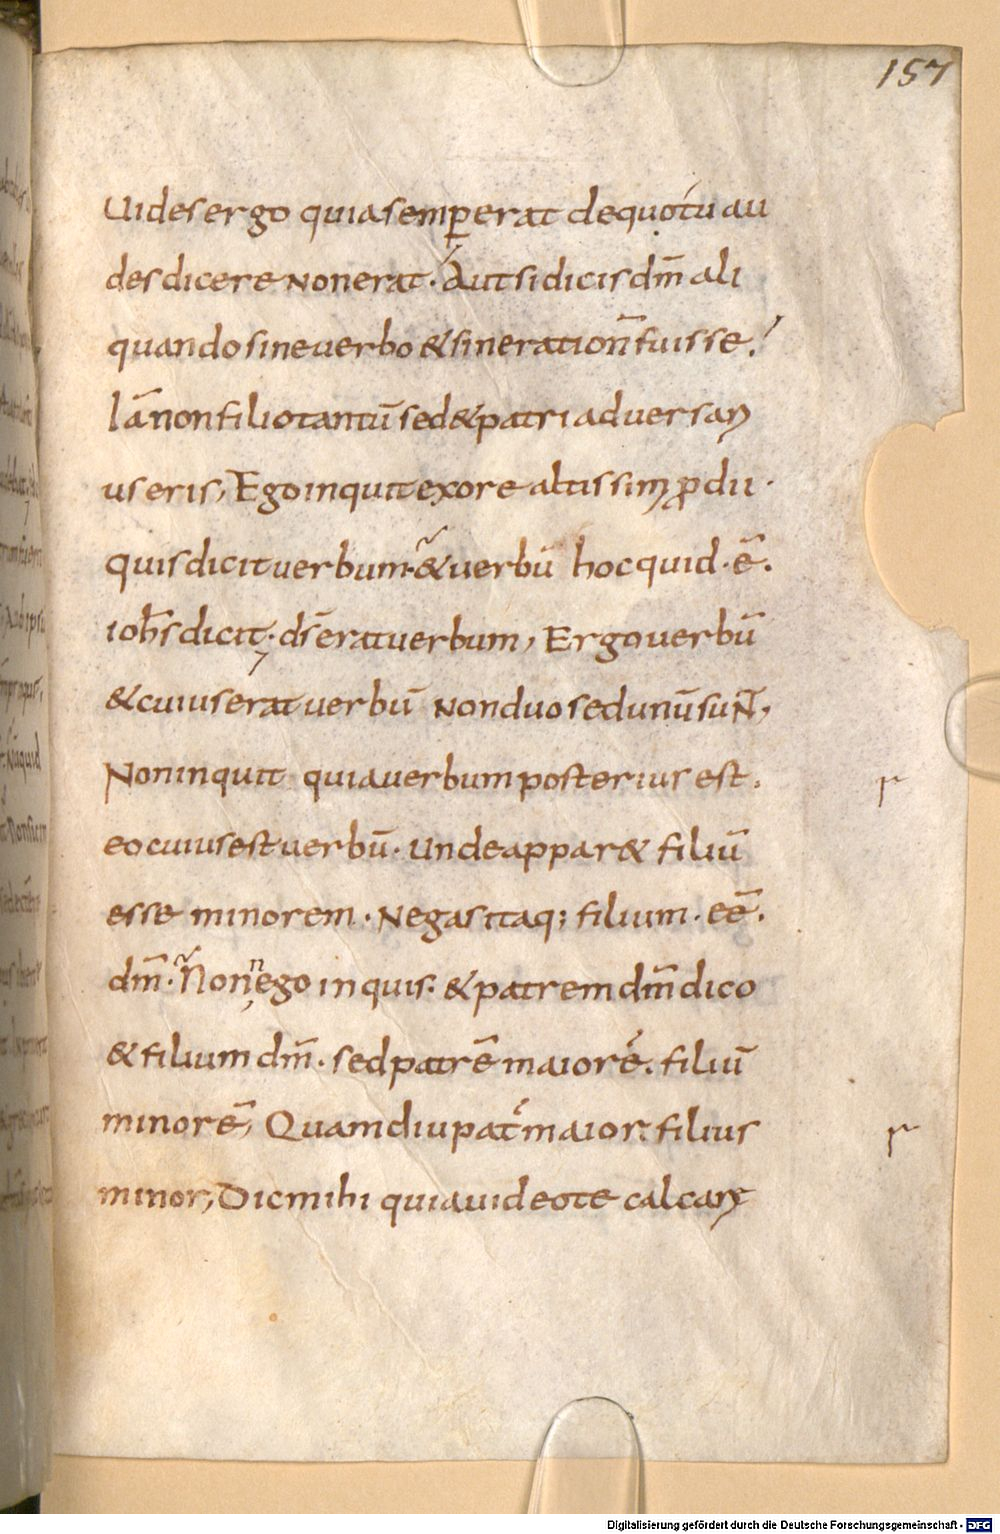 157
Uides ergo quia semp̱ erat de quo tu au
des dicere non erat · Aut si dicis dm̄ ali
quando sine uerbo & sine ration̄ fuisse.
Iā non filio tantū sed & patri aduersari
us eris, Ego inquit ex ore altissimi ꝓdii ·
quis dicit uerbum & uerbū hoc quid · ē .
ioh̄s dicit · d̄s erat uerbum, Ergo uerbū
& cuius erat uerbū Non duo sed unū suN̄,
Non inquit quia uerbum posterius est .
eo cuius est uerbū · unde appar& filiū
esse minorem · Negas itaq; filium · eē .
dm̄ · Non ego inquis · & patrem dm̄ dico
& filium dm̄ · sed patrē maiorē . filiū
minorē, Quamdiu pat̄ maior filius
minor, Dic mihi quia uideo te calcari
r
r
Digitalisierung gefördert durch die Deutsche Forschungsgemeinschaft - DFG